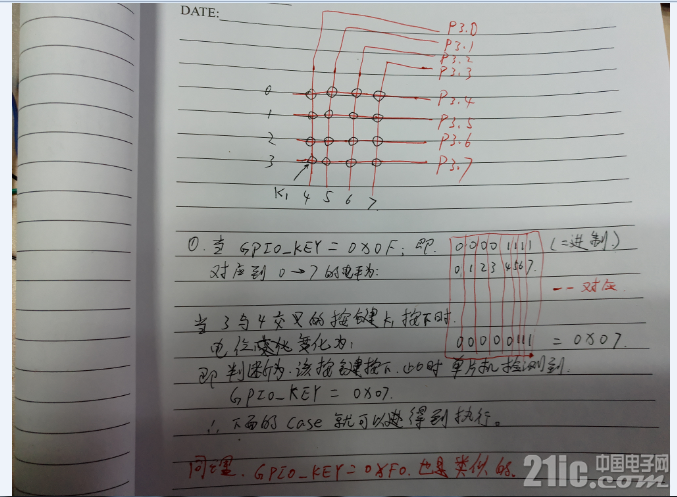 DATE:
P3.0
P3.1
P3.2
P3.3
0
P3.4
1
P3.5
2
P3.6
3
P3.7
K1 4 5 6 7
①. 当 GPIO_KEY = 0X0F; 即. 0 0 0 0 1 1 1 1 (二进制)
对应到 0→7 的电平为: 0 1 2 3 4 5 6 7
一一对应
当 3 与 4 交叉的按键 K1 按下时.
电位变化为: 0 0 0 0 0 1 1 1 = 0X07.
即判断为. 该按键按下. 此时 单片机检测到.
GPIO_KEY = 0X07.
∴ 下面的 case 就可以得到执行。
同理. GPIO_KEY = 0XF0. 也是类似的.
21ic.com 中国电子网